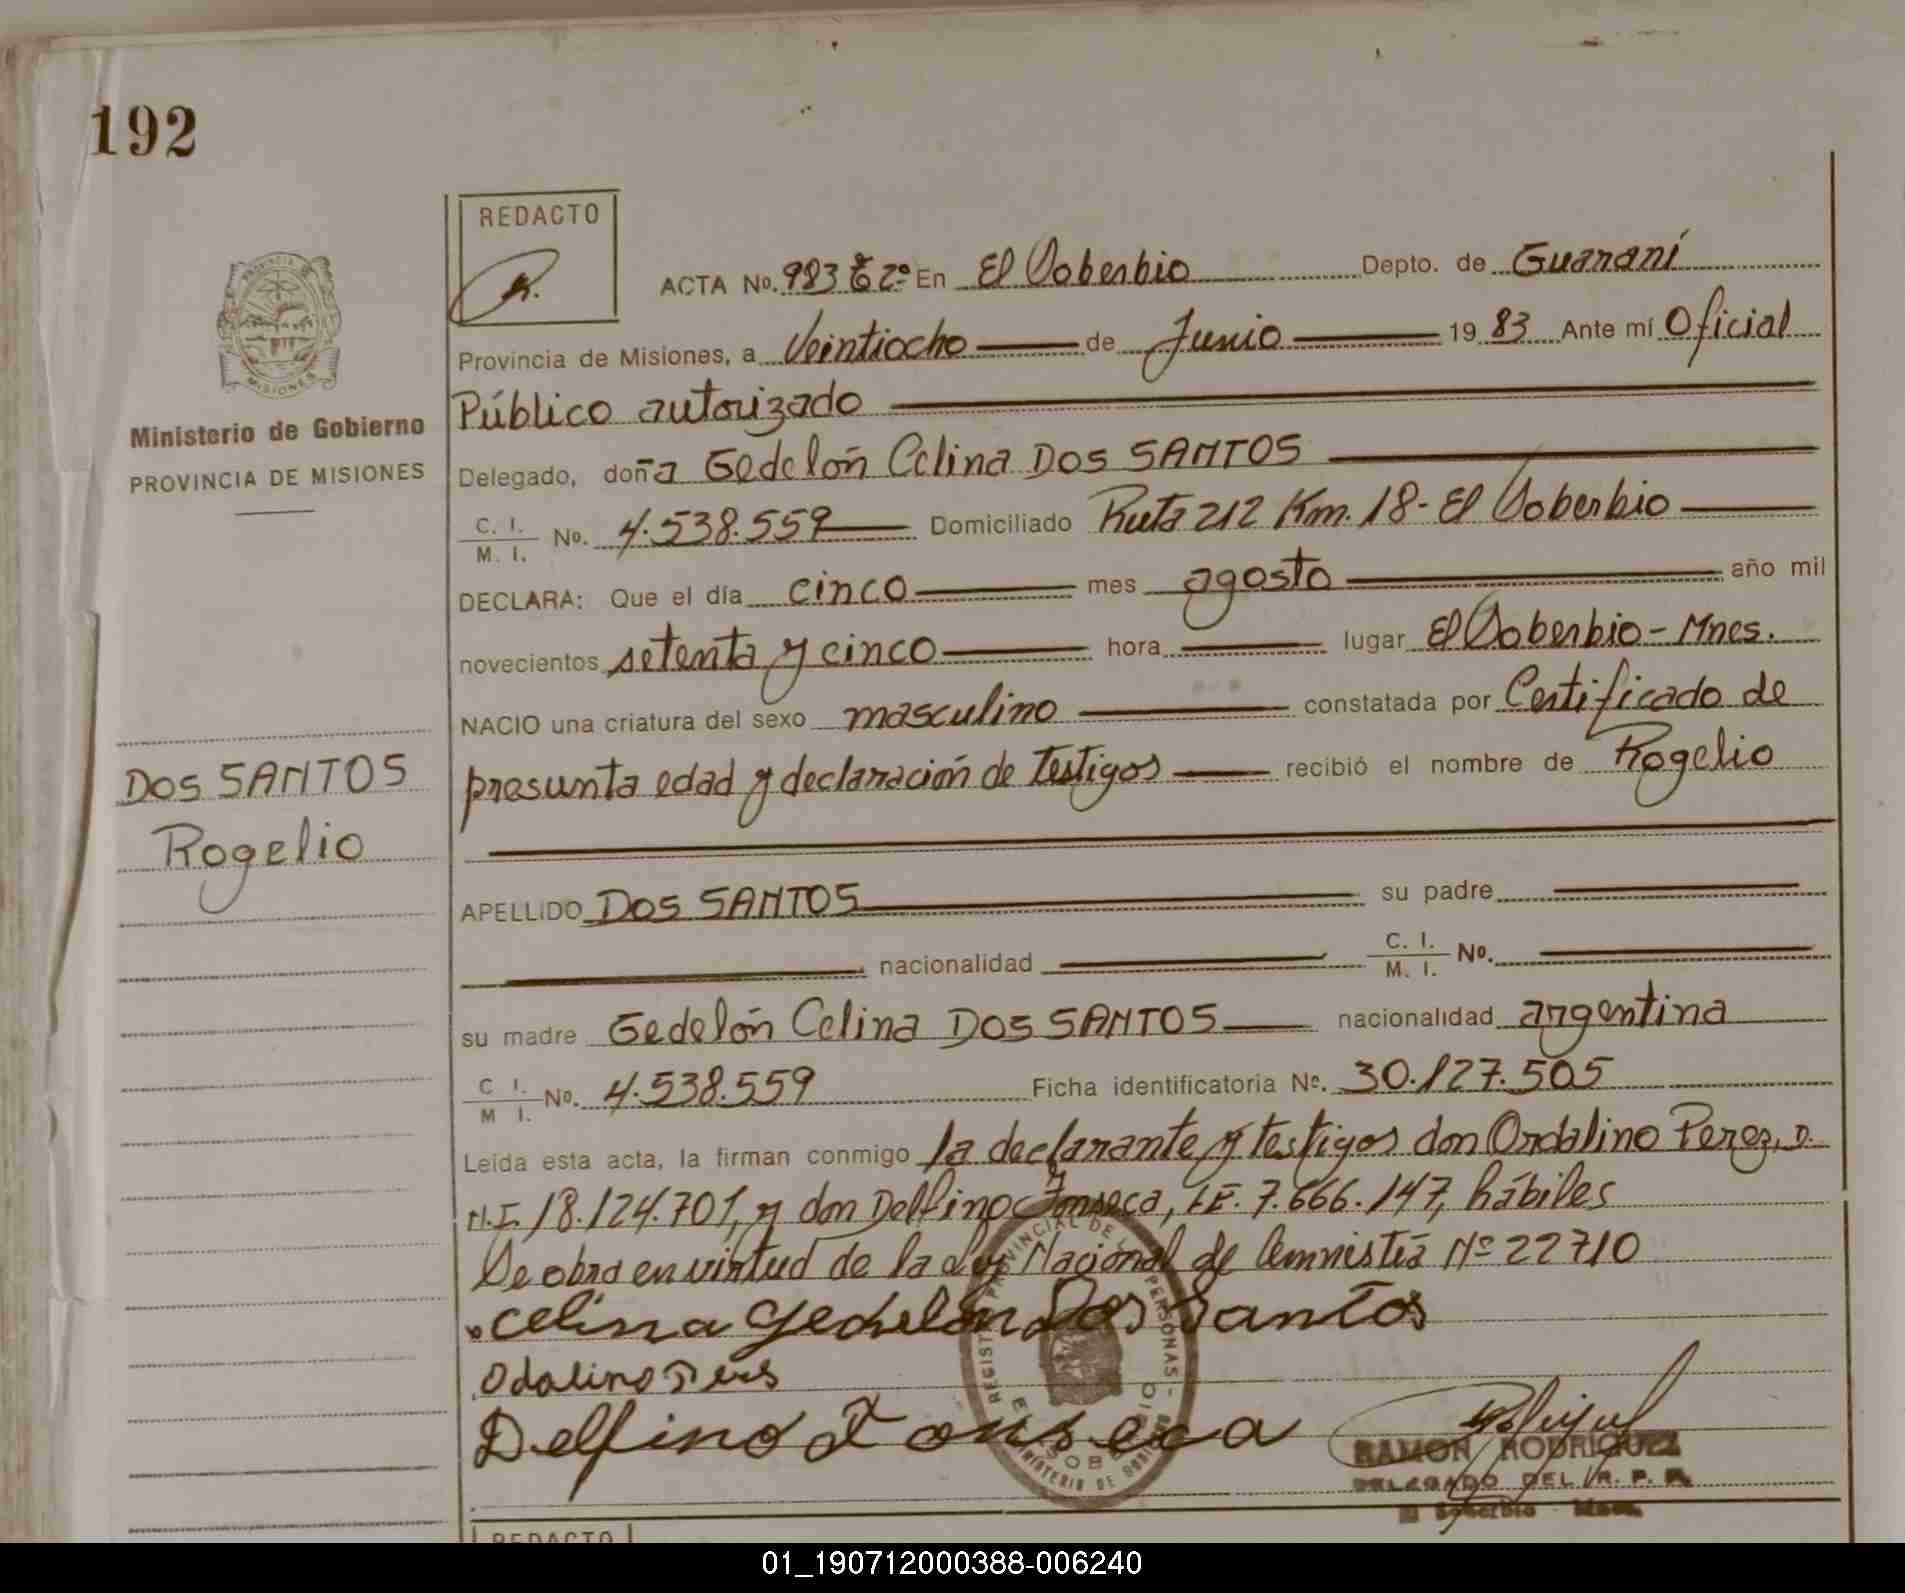 192
REDACTO
ACTA No. 983 Tº 2º En El Soberbio Depto. de Guaraní
Provincia de Misiones, a Veintiocho de Junio 19 83 Ante mí Oficial
Ministerio de Gobierno
PROVINCIA DE MISIONES
Público autorizado
Delegado, doña Gedelón Celina DOS SANTOS
C. I.
M. I. No. 4.538.559 Domiciliado Ruta 212 Km. 18 - El Soberbio
DECLARA: Que el día cinco mes agosto año mil
novecientos setenta y cinco hora lugar El Soberbio - Mnes.
NACIO una criatura del sexo masculino constatada por Certificado de
presunta edad y declaración de testigos recibió el nombre de Rogelio
DOS SANTOS
Rogelio
APELLIDO DOS SANTOS su padre
nacionalidad C. I.
M. I. No.
su madre Gedelón Celina DOS SANTOS nacionalidad argentina
C I.
M I. No. 4.538.559 Ficha identificatoria No. 30.127.505
Leída esta acta, la firman conmigo la declarante y testigos don Ordalino Perez, D.
N.I. 18.124.701, y don Delfino Fonseca, LE. 7.666.147, hábiles
Se obra en virtud de la Ley Nacional de Amnistía Nº 22710
Celina Gedelon Dos Santos
Odalino
Delfino Fonseca
REGISTRO PROVINCIAL DE LAS PERSONAS
EL SOBERBIO
MINISTERIO DE GOBIERNO
RAMON RODRIGUEZ
DELEGADO DEL R. P. P.
El Soberbio Mnes.
REDACTO
01_190712000388-006240